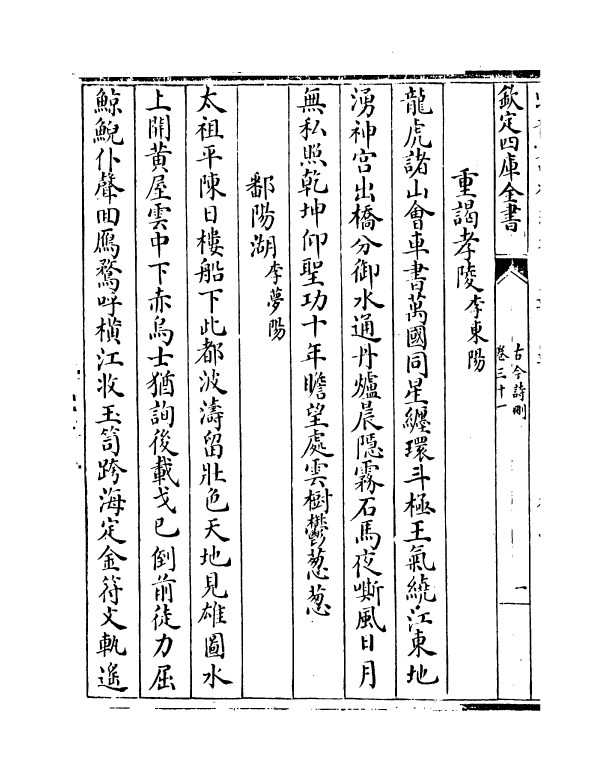 欽定四庫全書
古今詩刪
卷三十一
一
重謁孝陵李東陽
龍虎諸山會車書萬國同星纏環斗極王氣繞江東地
湧神宫出橋分御水通丹爐晨隠霧石馬夜嘶風日月
無私照乾坤仰聖功十年瞻望處雲樹鬱葱葱
鄱陽湖李夢陽
太祖平陳日樓船下此都波濤留壯色天地見雄圖水
上開黄屋雲中下赤烏士猶詢後載戈已倒前徒力屈
鯨鯢仆聲回鴈鶩呼横江收玉笥跨海定金符文軌遥